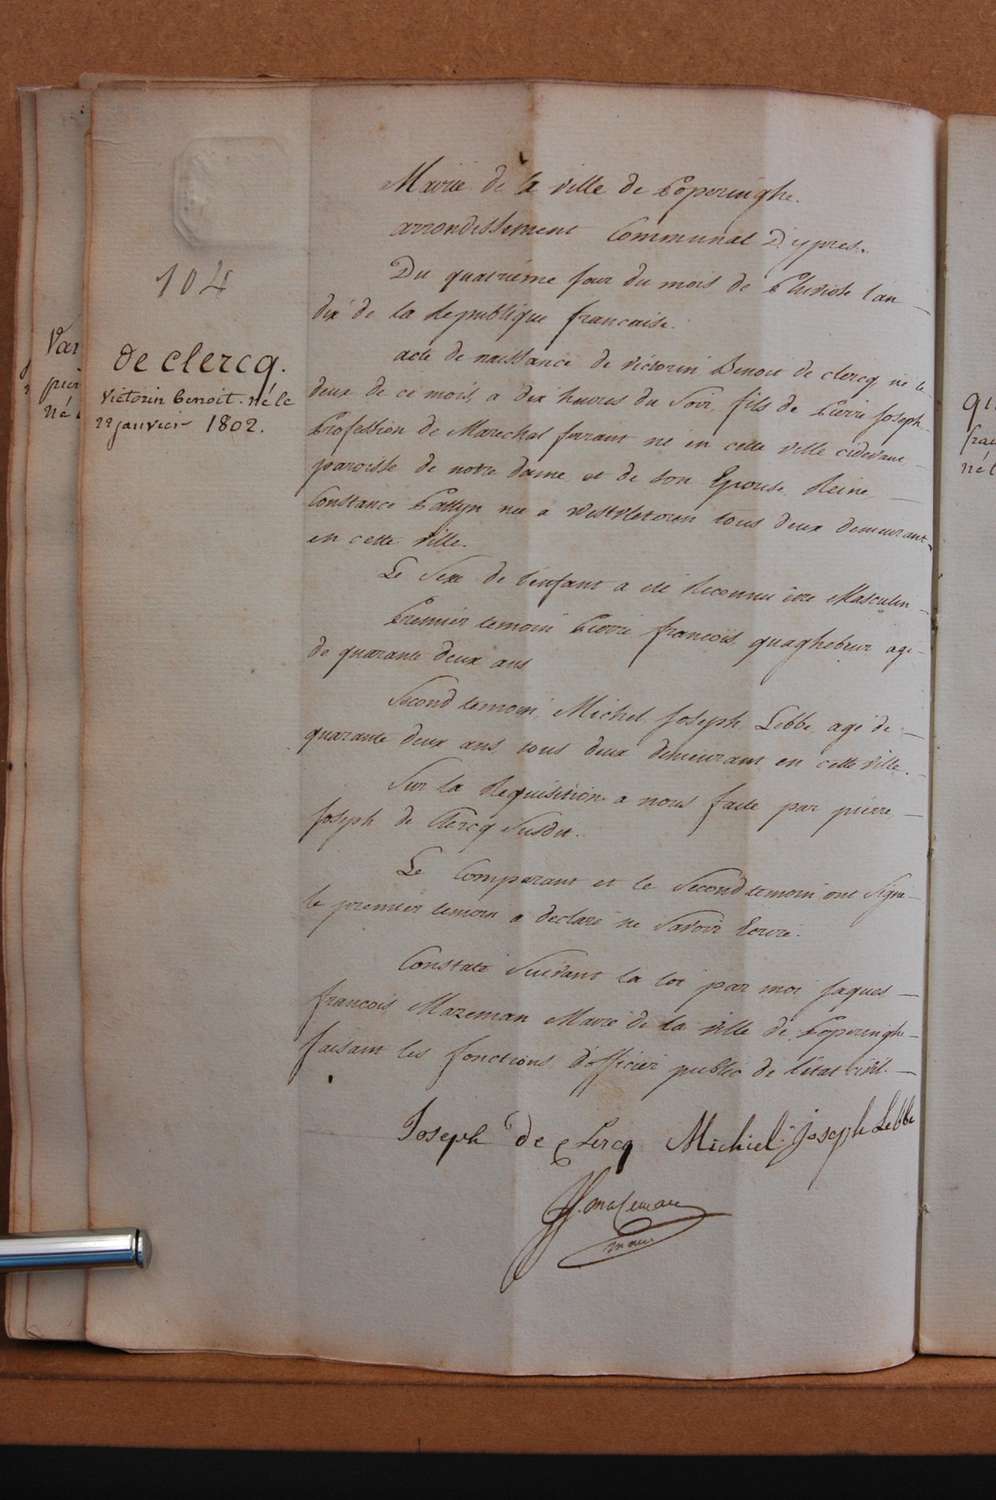 104
de clercq.
victorin benoit. né le
22 janvier 1802.
Mairie de la ville de Poperinghe.
arrondissement Communal D'ypres.
Du quatrieme jour du mois de Pluviose l'an
dix de la Republique francaise.
acte de naissance de victorin Benoit de clercq né le
deux de ce mois, a dix heures du Soir, fils de Pierre Joseph
Profession de Marechal ferrant né en cette ville cidevant
paroisse de notre dame et de son Epouse Reine
Constance Pattyn née a Westvleteren tous deux demeurant
en cette ville.
Le Sexe de l'enfant a été Reconnu être Masculin
Premier temoin Pierre francois quaghebeur agé
de quarante deux ans
Second temoin, Michel Joseph Lebbe agé de
quarante deux ans tous deux demeurant en cette ville.
Sur la Requisition a nous faite par pierre
Joseph de Clercq Susdit.
Le Comparant et le Second temoin ont Signé
le premier temoin a declaré ne Savoir Ecrire.
Constaté Suivant la loi par moi Jaques
francois Mazeman Maire de la ville de Poperinghe
faisant les fonctions d'officier public de l'état civil.
Joseph De Clercq Michiel Joseph Lebbe
JF. Mazeman
maire
Van
pier
né
qu
fra
né l